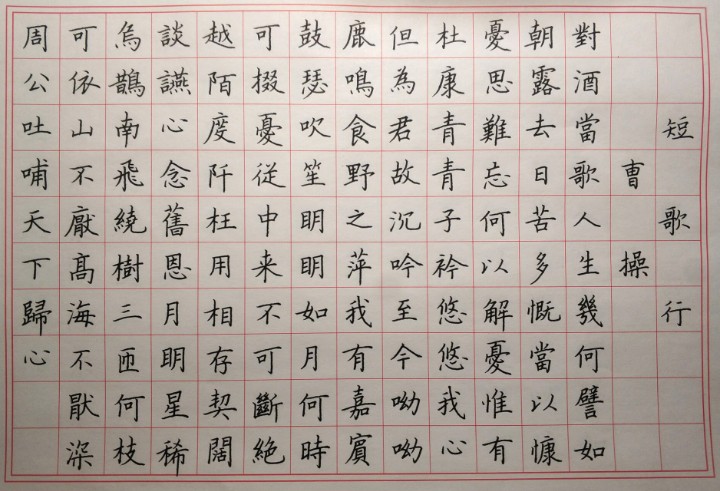 短歌行
曹操
對酒當歌人生幾何譬如
朝露去日苦多慨當以慷
憂思難忘何以解憂惟有
杜康青青子衿悠悠我心
但為君故沉吟至今呦呦
鹿鳴食野之萍我有嘉賓
鼓瑟吹笙明明如月何時
可掇憂從中来不可斷絶
越陌度阡枉用相存契闊
談讌心念舊恩月明星稀
烏鵲南飛繞樹三匝何枝
可依山不厭髙海不猒深
周公吐哺天下歸心